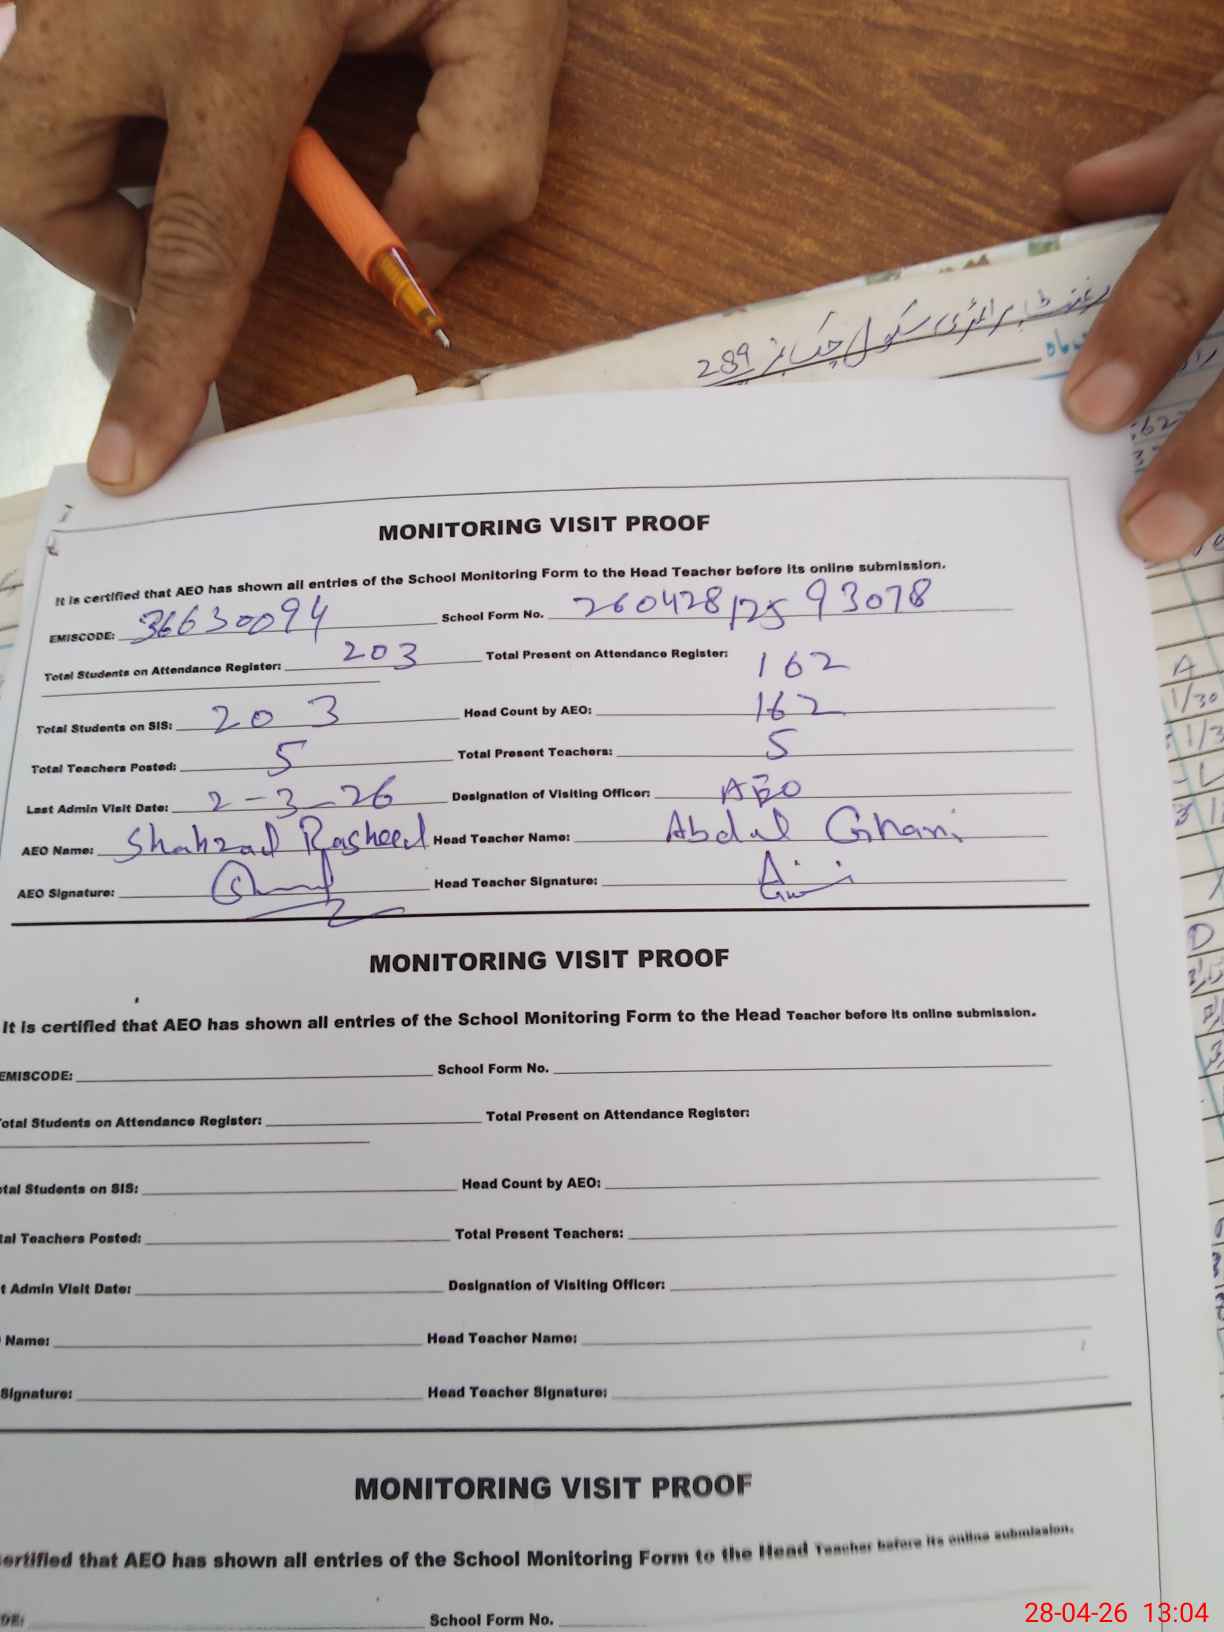 پرائمری سکول چک نمبر 289
MONITORING VISIT PROOF
It is certified that AEO has shown all entries of the School Monitoring Form to the Head Teacher before its online submission.
EMISCODE: 36630094 School Form No. 26042812593078
Total Students on Attendance Register: 203 Total Present on Attendance Register: 162
Total Students on SIS: 203 Head Count by AEO: 162
Total Teachers Posted: 5 Total Present Teachers: 5
Last Admin Visit Date: 2-3-26 Designation of Visiting Officer: AEO
AEO Name: Shahzad Rasheed Head Teacher Name: Abdul Ghani
AEO Signature: Head Teacher Signature:
MONITORING VISIT PROOF
It is certified that AEO has shown all entries of the School Monitoring Form to the Head Teacher before its online submission.
EMISCODE: School Form No.
otal Students on Attendance Register: Total Present on Attendance Register:
tal Students on SIS: Head Count by AEO:
tal Teachers Posted: Total Present Teachers:
t Admin Visit Date: Designation of Visiting Officer:
Name: Head Teacher Name:
Signature: Head Teacher Signature:
MONITORING VISIT PROOF
ertified that AEO has shown all entries of the School Monitoring Form to the Head Teacher before its online submission.
DE: School Form No.
28-04-26 13:04